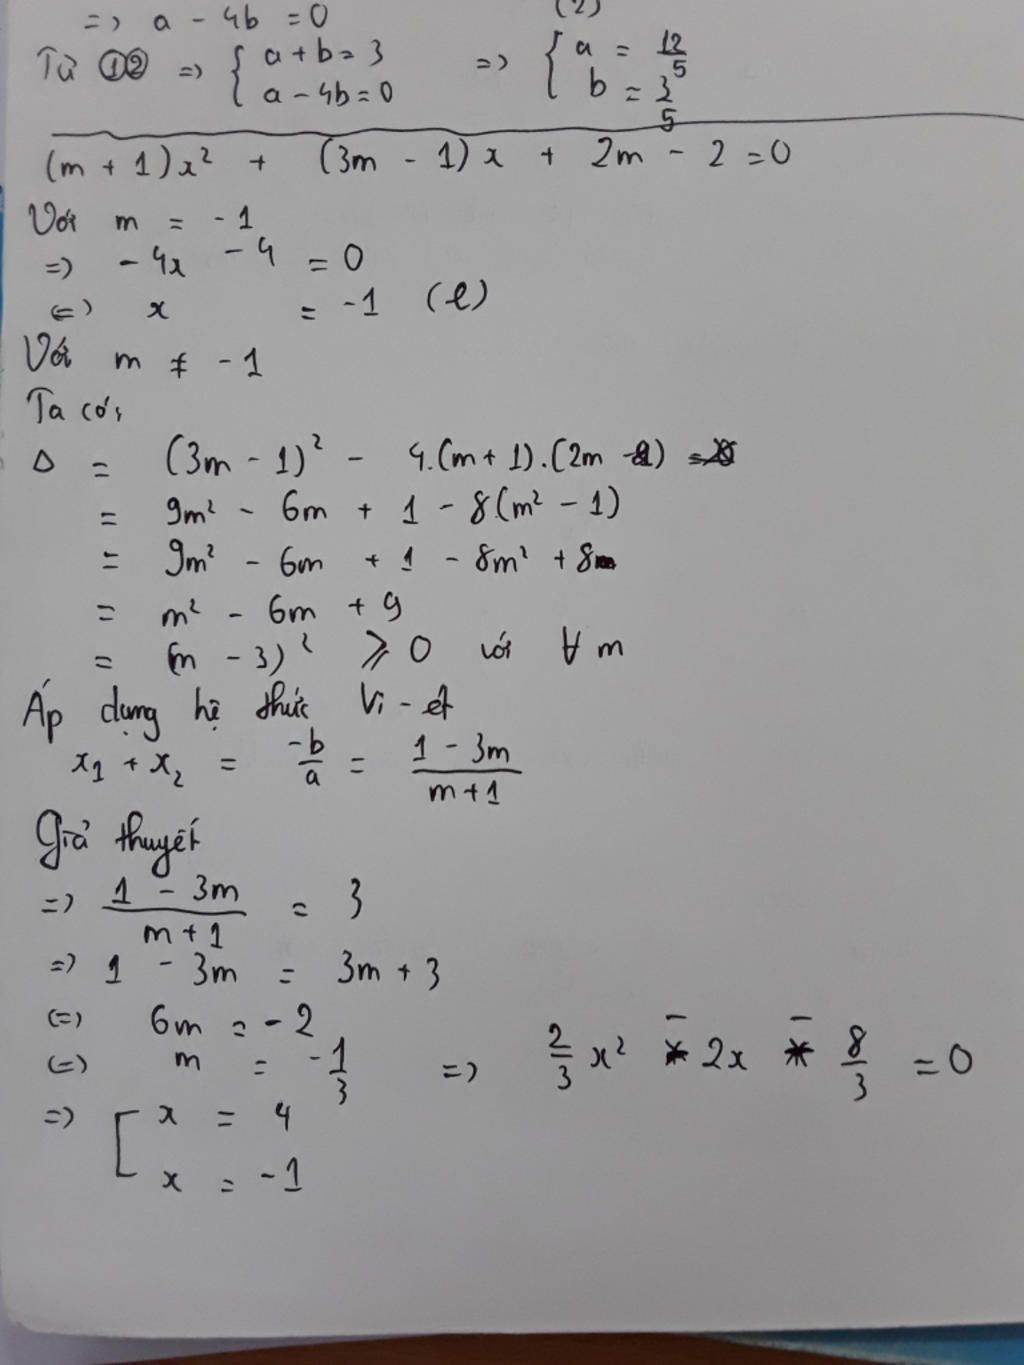 => a - 4b = 0 (2)
Từ ①② => { a + b = 3 => { a = 12/5
a - 4b = 0 b = 3/5
(m + 1)x² + (3m - 1)x + 2m - 2 = 0
Với m = -1
=> -4x - 4 = 0
<=> x = -1 (l)
Với m ≠ -1
Ta có,
Δ = (3m - 1)² - 4.(m + 1).(2m - 2)
= 9m² - 6m + 1 - 8(m² - 1)
= 9m² - 6m + 1 - 8m² + 8
= m² - 6m + 9
= (m - 3)² ⩾ 0 với ∀ m
Áp dụng hệ thức Vi-ét
x₁ + x₂ = -b/a = (1 - 3m)/(m + 1)
Giả thuyết
=> (1 - 3m)/(m + 1) = 3
=> 1 - 3m = 3m + 3
(=) 6m = -2
(=) m = -1/3 => 2/3 x² - 2x - 8/3 = 0
=> [ x = 4
x = -1